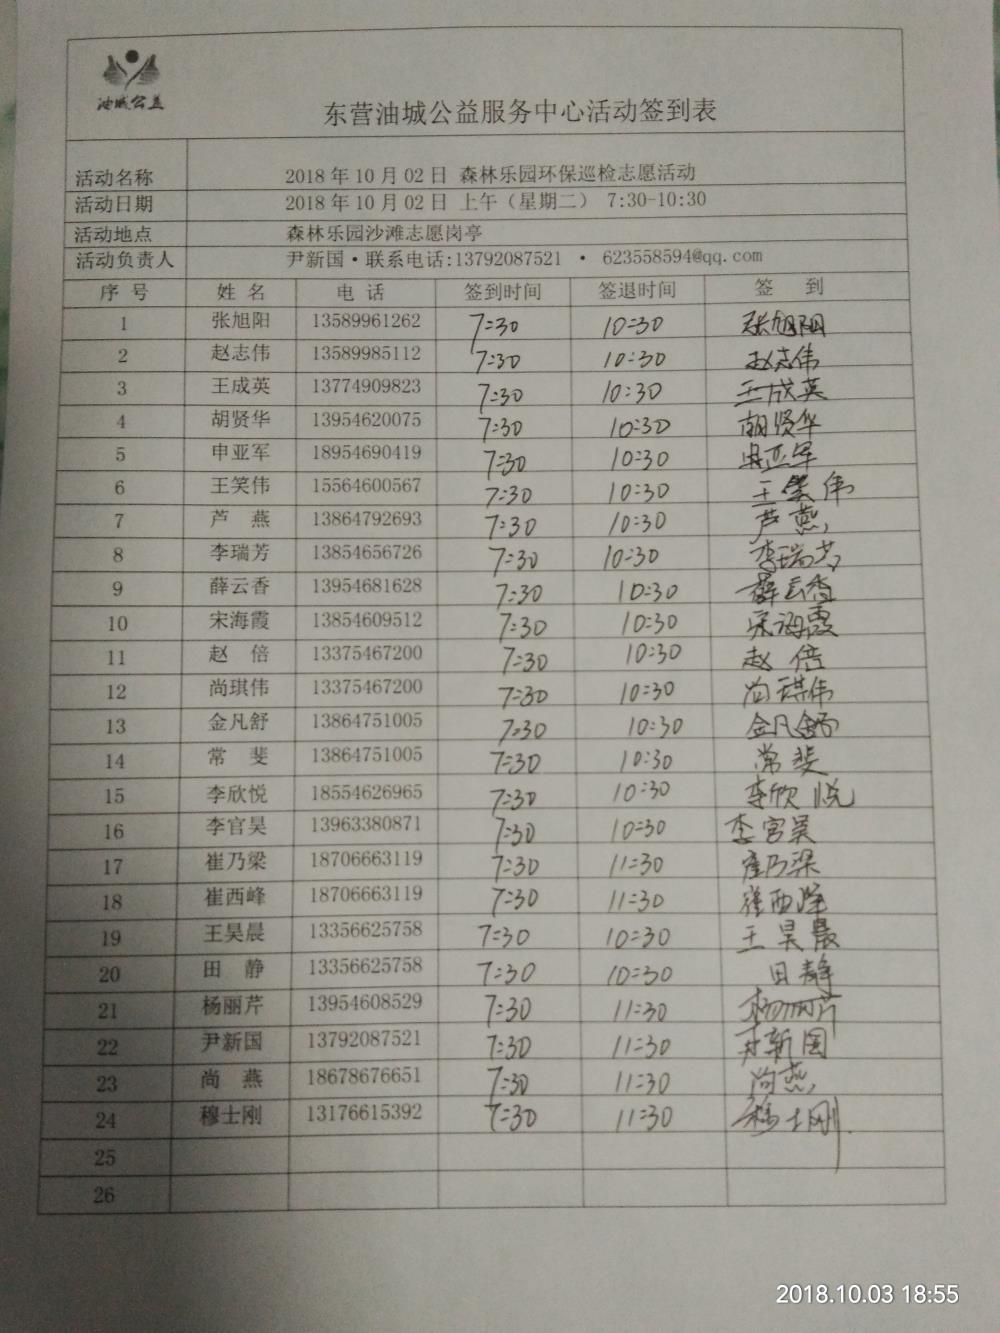 油城公益
东营油城公益服务中心活动签到表
活动名称 2018年10月02日 森林乐园环保巡检志愿活动
活动日期 2018年10月02日 上午（星期二） 7:30-10:30
活动地点 森林乐园沙滩志愿岗亭
活动负责人 尹新国·联系电话:13792087521 · 623558594@qq.com
序号 姓名 电话 签到时间 签退时间 签到
1 张旭阳 13589961262 7:30 10:30 张旭阳
2 赵志伟 13589985112 7:30 10:30 赵志伟
3 王成英 13774909823 7:30 10:30 王成英
4 胡贤华 13954620075 7:30 10:30 胡贤华
5 申亚军 18954690419 7:30 10:30 申亚军
6 王笑伟 15564600567 7:30 10:30 王笑伟
7 芦燕 13864792693 7:30 10:30 芦燕
8 李瑞芳 13854656726 7:30 10:30 李瑞芳
9 薛云香 13954681628 7:30 10:30 薛云香
10 宋海霞 13854609512 7:30 10:30 宋海霞
11 赵倍 13375467200 7:30 10:30 赵倍
12 尚琪伟 13375467200 7:30 10:30 尚琪伟
13 金凡舒 13864751005 7:30 10:30 金凡舒
14 常斐 13864751005 7:30 10:30 常斐
15 李欣悦 18554626965 7:30 10:30 李欣悦
16 李官昊 13963380871 7:30 10:30 李官昊
17 崔乃梁 18706663119 7:30 11:30 崔乃梁
18 崔西峰 18706663119 7:30 11:30 崔西峰
19 王昊晨 13356625758 7:30 10:30 王昊晨
20 田静 13356625758 7:30 10:30 田静
21 杨丽芹 13954608529 7:30 11:30 杨丽芹
22 尹新国 13792087521 7:30 11:30 尹新国
23 尚燕 18678676651 7:30 11:30 尚燕
24 穆士刚 13176615392 7:30 11:30 穆士刚
25
26
2018.10.03 18:55